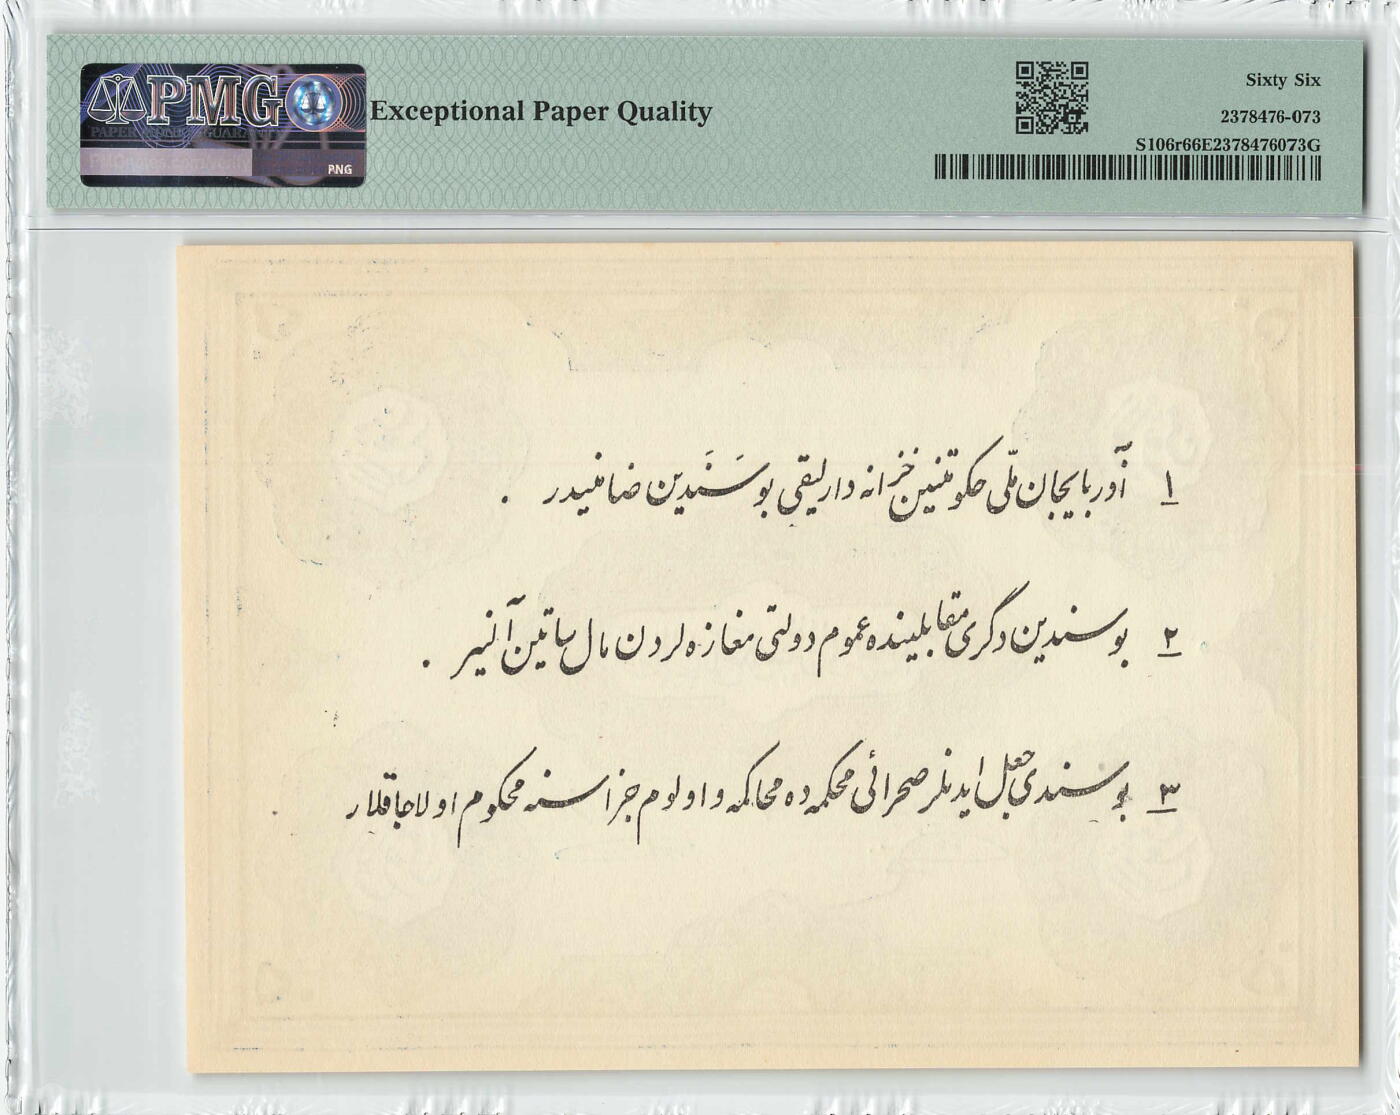 PMG
PAPER MONEY GUARANTY
PNG
Exceptional Paper Quality
Sixty Six
2378476-073
S106r66E2378476073G
١ آذربایجان ملّی حکومتنین خزانه دارلیقی بو سَنَدین ضامنیدر .
٢ بو سندین دگری مقابلینده عموم دولتی مغازه لردن مال ساتین آلنیر .
٣ بو سندی جعل ایدنلر صحرائی محکمه ده محاکمه و اولوم جزاسنه محکوم اولاجاقلار